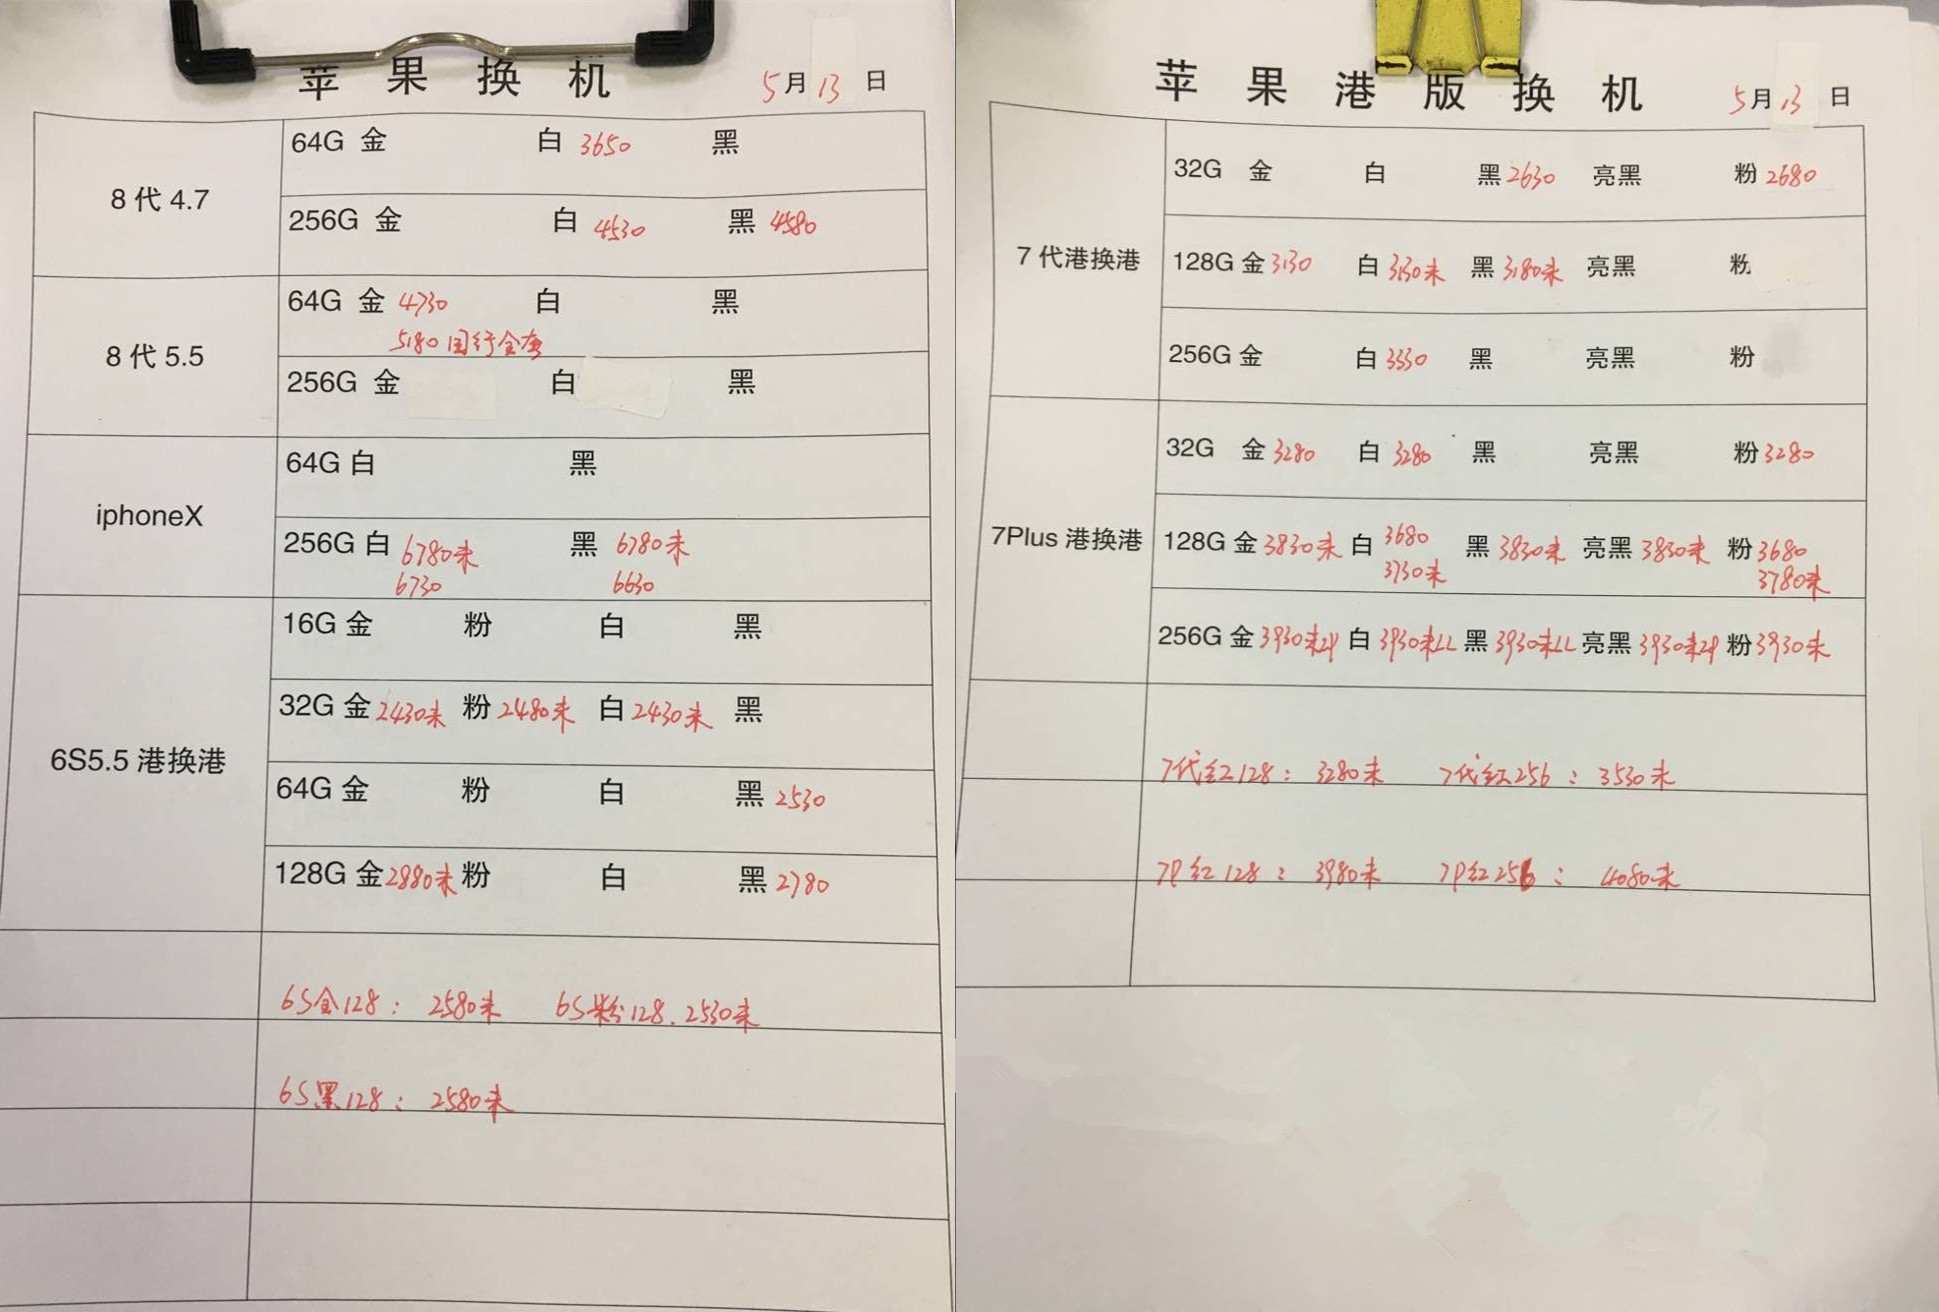 苹果换机 5月13日
8代4.7
64G 金 白 3650 黑
256G 金 白 4530 黑 4580
8代5.5
64G 金 4730 白 黑
5180 国行全套
256G 金 白 黑
iphoneX
64G 白 黑
256G 白 6780未 黑 6780未
6730 6630
6S5.5港换港
16G 金 粉 白 黑
32G 金 2430未 粉 2480未 白 2430未 黑
64G 金 粉 白 黑 2530
128G 金 2880未 粉 白 黑 2780
6S金128: 2580未 6S粉128. 2530未
6S黑128: 2580未
苹果港版换机 5月13日
7代港换港
32G 金 白 黑 2630 亮黑 粉 2680
128G 金 3130 白 3130未 黑 3180未 亮黑 粉
256G 金 白 3330 黑 亮黑 粉
7Plus港换港
32G 金 3280 白 3280 黑 亮黑 粉 3280
128G 金 3830未 白 3680 黑 3830未 亮黑 3830未 粉 3680
3730未 3780未
256G 金 3930未zp 白 3930未LL 黑 3930未LL 亮黑 3930未zp 粉 3930未
7代红128: 3280未 7代红256: 3530未
7P红128: 3980未 7P红256: 4080未